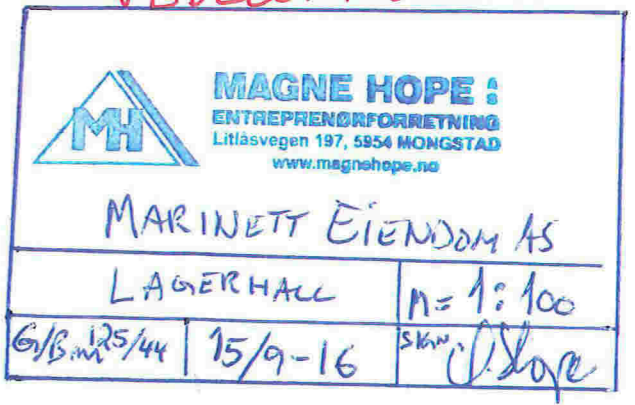 MAGNE HOPE AS
MH
ENTREPRENØRFORRETNING
Litlåsvegen 197, 5954 MONGSTAD
www.magnehope.no
MARINETT EIENDOM AS
LAGERHALL
M= 1:100
G/B.nr 125/44
15/9-16
SIGN.